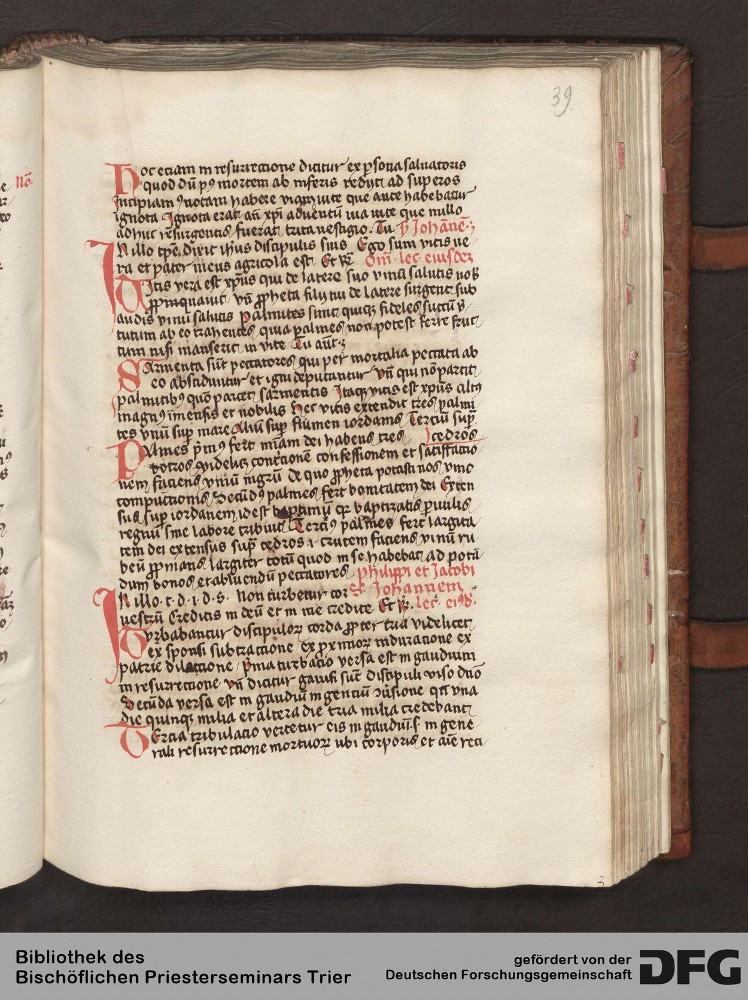 39
Hoc eciam in resurrectione dicitur ex psona saluatoris
quod dū pꝰ mortem ab inferis redijt ad superos
ignota Ignota erat añ xpi aduentū uia uite que nullo
adhuc resurgentis fuerat trita uestigio Tu ß Johānē
IN illo tpe Dixit ihus discipulis suis Ego sum vitis ue
ra et pater meus agricola est Et Rͤ Om̄ lec eiusdem
Vitis vera est xp̄us qui de latere suo vinū salutis nob
audis vinū salutis Palmites sunt quiqꝫ fideles
tutum ab eo trahentes quia palmes non potest ferre fruc
tum nisi manserit in vite Tu aut
Sarmenta sūt peccatores qui per mortalia peccata ab
eo absciduntur et igni deputantur vn̄ qui nō parcit
palmitibꝰ quō parcet sarmentis Itaqꝫ vitis est xp̄us altꝰ
magnꝰ īmensus et nobilis hec vitis extendit tres palmi
tes vnū sup mare Aliū sup flumen iordanis Terciū sup
Palmes pmꝰ fert mīam dei habens tres cedros
botros videlicꝫ contricionē confessionem et satisfactio
nem faciens vinū nigrū de quo ꝓpheta potasti nos vino
compunctionis Secūdꝰ palmes fert bonitatem dei Exten
sus sup iordanem id est baptismū qr baptizatis puulis
regnū sine labore tribuit Terciꝰ palmes fert largita
tem dei extensus sup cedros i crucem faciens vinū ru
beū ꝓpinans largiter totū quod in se habebat ad potā
dum bonos et abluendū peccatores Philippi et Jacobi
IN illo t d i d s Non turbetur cor Sͨ Johannem
uestrū Creditis in deū et in me credite Et Rͤ lec eiusd
Turbabantur discipulorꝫ corda ꝓpter tria videlicet
ex sponsi subtractione ex pximorꝫ induracione ex
patrie dilacione Pma turbacio versa est in gaudium
in resurrectione vn̄ dicitur gauisi sūt discipuli viso dn̄o
Secūda versa est in gaudiū in gentiū qn̄ vna
die quinqꝫ milia et altera die tria milia credebant
Tercia tribulacio vertetur eis in gaudiū in gene
rali resurrectione mortuorꝫ ubi corporis et aīe
Bibliothek des
Bischöflichen Priesterseminars Trier
gefördert von der
Deutschen Forschungsgemeinschaft
DFG